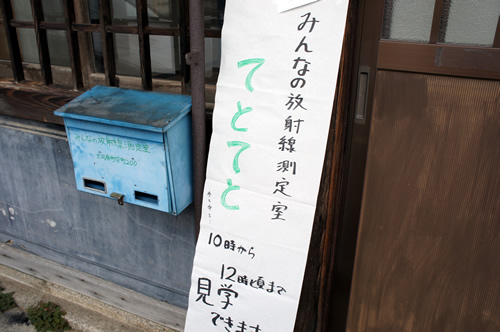 みんなの放射線測定室
てとてと
10時から
12時頃まで
見学
できます
みんなの放射線測定室